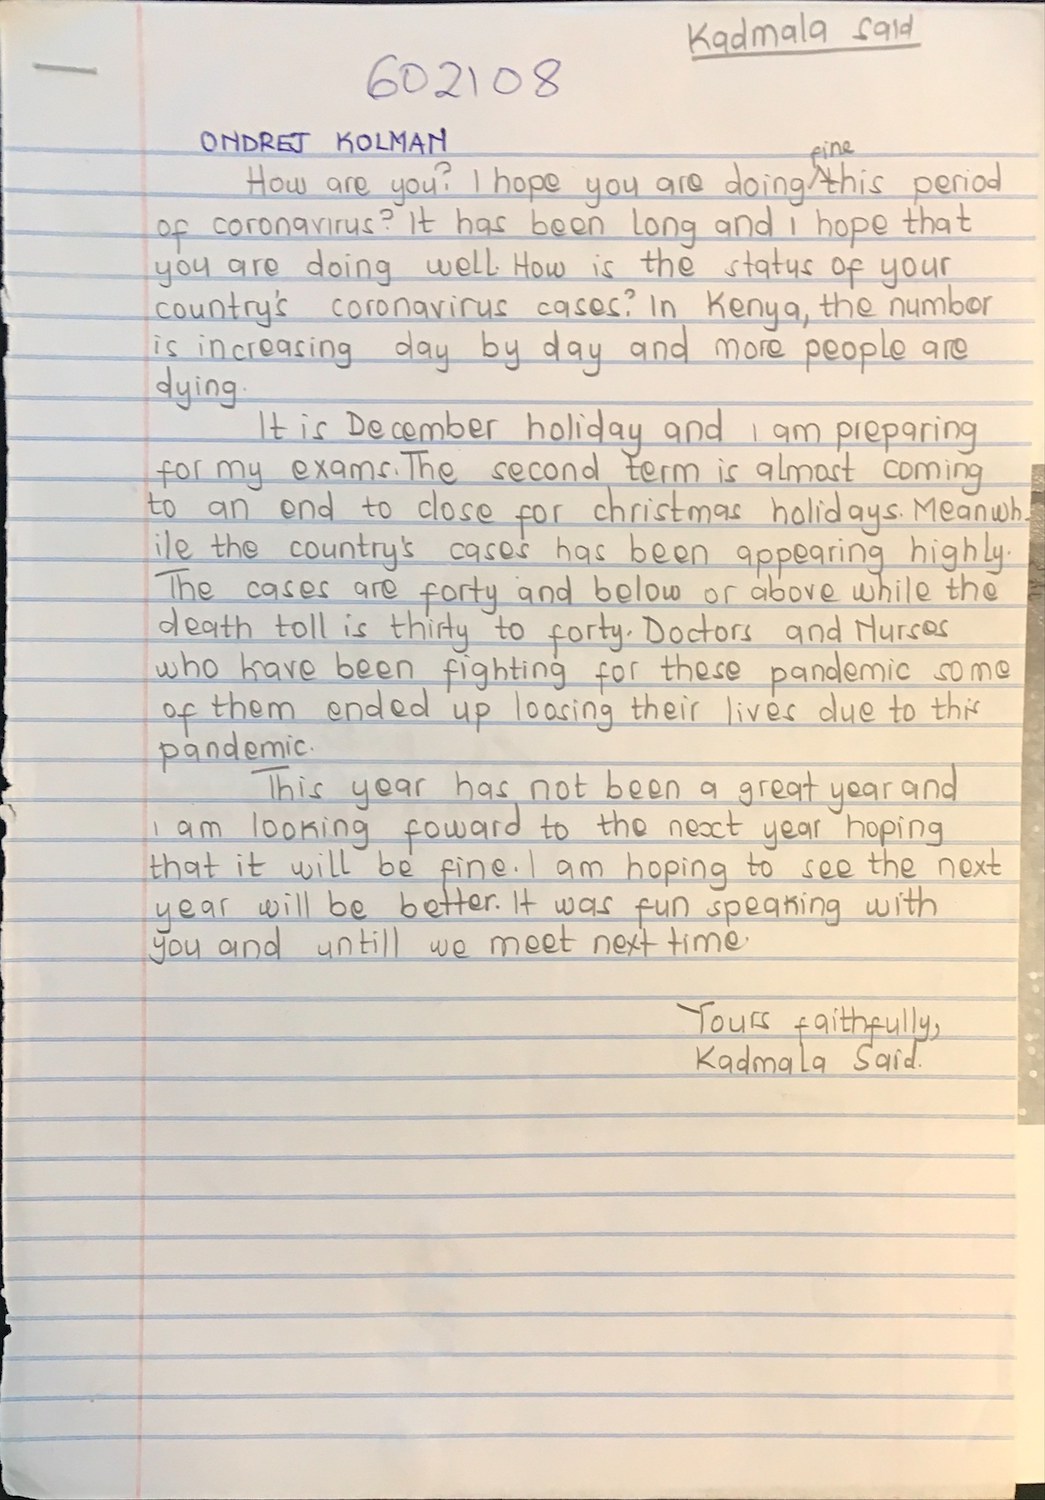 Kadmala Said
602108
ONDREJ KOLMAN
fine
How are you? I hope you are doing ^ this period
of coronavirus? It has been long and I hope that
you are doing well. How is the status of your
country's coronavirus cases? In Kenya, the number
is increasing day by day and more people are
dying.
It is December holiday and I am preparing
for my exams. The second term is almost coming
to an end to close for christmas holidays. Meanwh-
ile the country's cases has been appearing highly.
The cases are forty and below or above while the
death toll is thirty to forty. Doctors and Nurses
who have been fighting for these pandemic some
of them ended up loosing their lives due to this
pandemic.
This year has not been a great year and
I am looking foward to the next year hoping
that it will be fine. I am hoping to see the next
year will be better. It was fun speaking with
you and untill we meet next time.
Yours faithfully,
Kadmala Said.